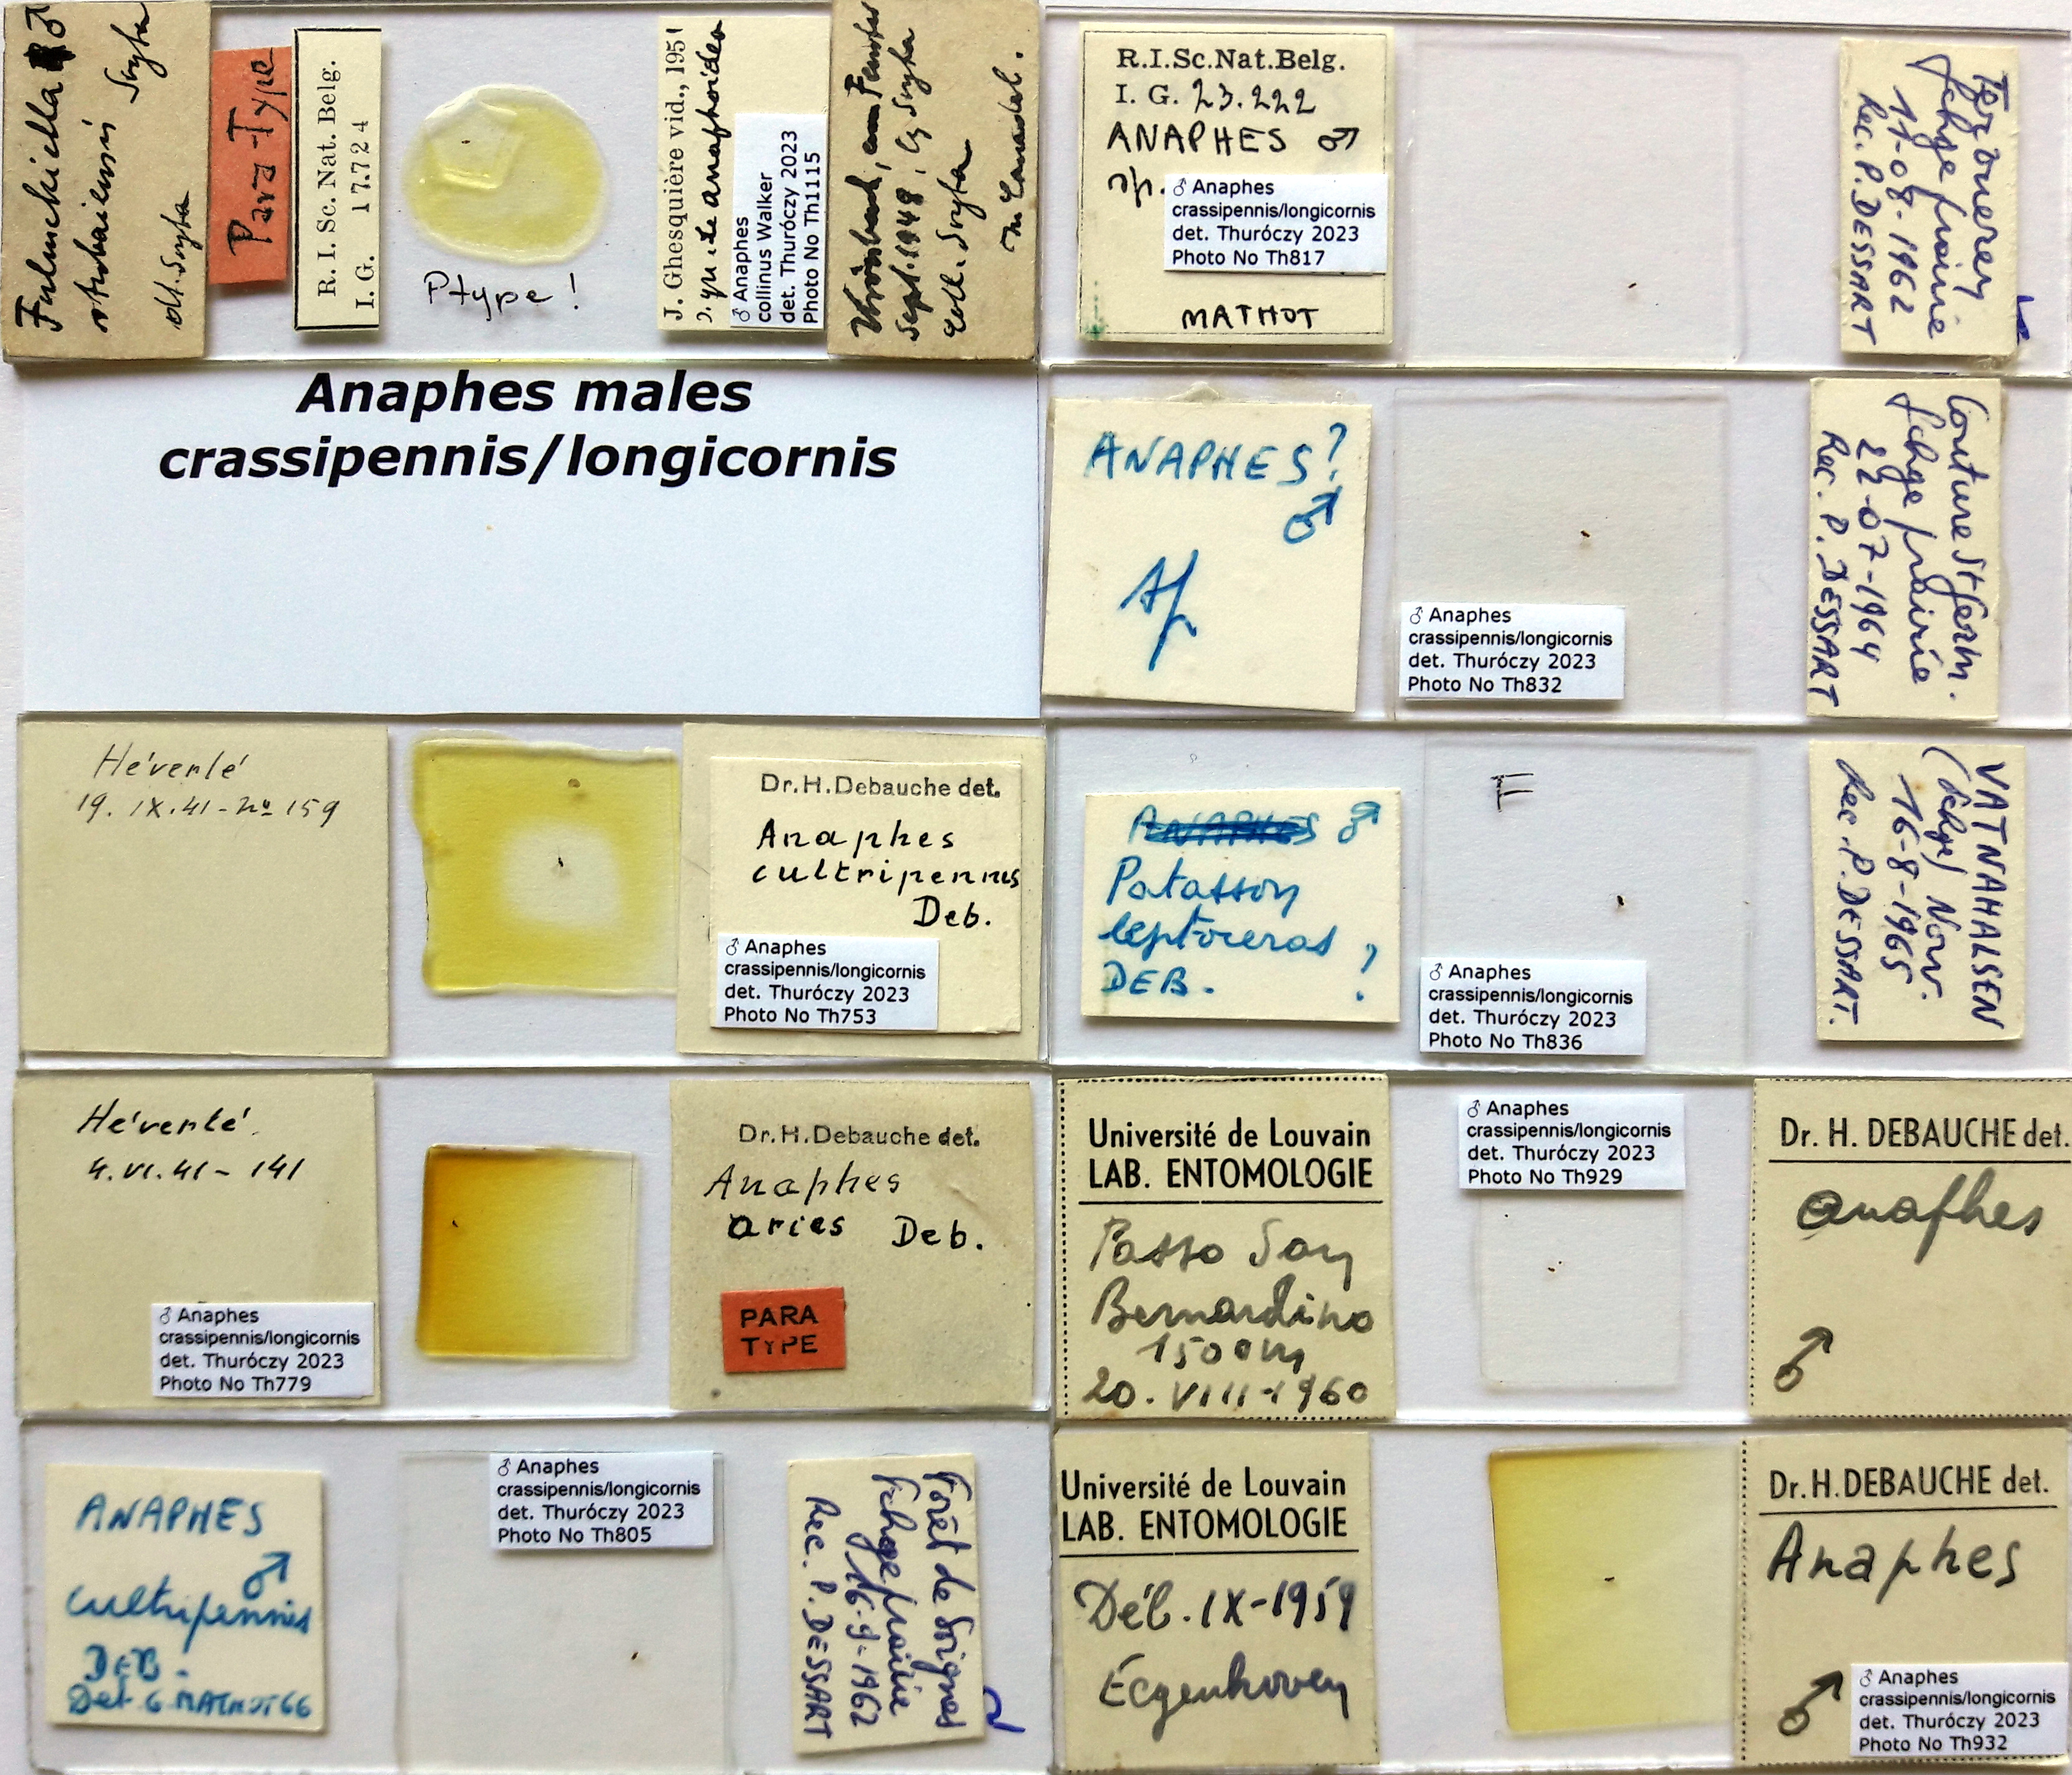 Para-Type
R. I. Sc. Nat. Belg.
I. G. 17.724
Ptype !
J. Ghesquière vid., 1951
♂ Anaphes
collinus Walker
det. Thuróczy 2023
Photo No Th1115
Sept. 1948
R.I.Sc.Nat.Belg.
I. G. 23.222
ANAPHES ♂
sp.
♂ Anaphes
crassipennis/longicornis
det. Thuróczy 2023
Photo No Th817
MATHOT
11-08-1962
Rec. P. DESSART
Anaphes males
crassipennis/longicornis
ANAPHES?
♂
♂ Anaphes
crassipennis/longicornis
det. Thuróczy 2023
Photo No Th832
22-07-1964
Rec. P. DESSART
Héverlé
19. IX. 41 - no 159
Dr. H. Debauche det.
Anaphes
cultripennis
Deb.
♂ Anaphes
crassipennis/longicornis
det. Thuróczy 2023
Photo No Th753
ANAPHES ♂
Patasson
leptoceras ?
DEB.
F
♂ Anaphes
crassipennis/longicornis
det. Thuróczy 2023
Photo No Th836
VATNAHALSEN
Norv.
16-8-1965
Rec. P. DESSART.
Héverlé
4. VI. 41 - 141
♂ Anaphes
crassipennis/longicornis
det. Thuróczy 2023
Photo No Th779
Dr. H. Debauche det.
Anaphes
aries Deb.
PARA
TYPE
Université de Louvain
LAB. ENTOMOLOGIE
Passo San
Bernardino
1500m
20. VIII-1960
♂ Anaphes
crassipennis/longicornis
det. Thuróczy 2023
Photo No Th929
Dr. H. DEBAUCHE det.
Anaphes
♂
ANAPHES
♂
cultripennis
DEB.
Det. G. MATHOT 66
♂ Anaphes
crassipennis/longicornis
det. Thuróczy 2023
Photo No Th805
Forêt de Soignes
16-9-1962
Rec. P. DESSART
Université de Louvain
LAB. ENTOMOLOGIE
Déb. IX-1959
Eegenhoven
Dr. H. DEBAUCHE det.
Anaphes
♂
♂ Anaphes
crassipennis/longicornis
det. Thuróczy 2023
Photo No Th932